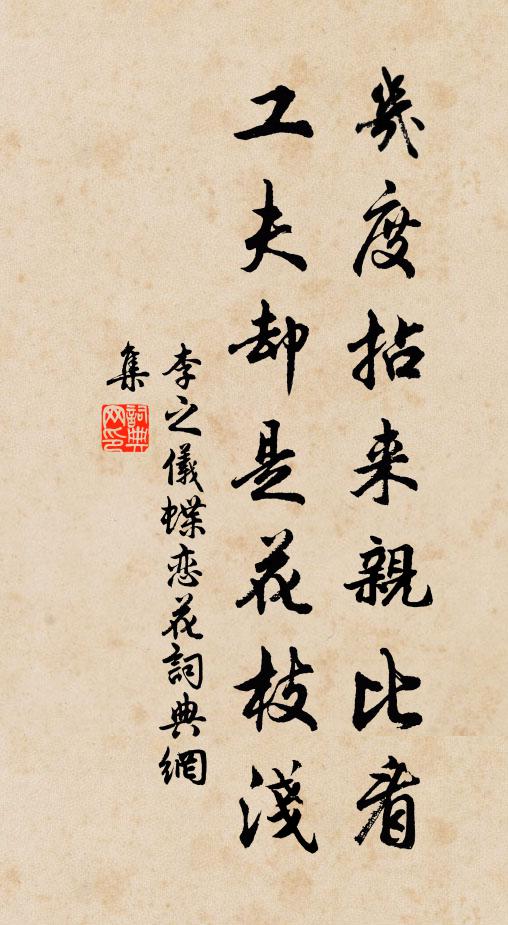 幾度拈来親比看
工夫却是花枝淺
李之儀蝶恋花詞典網
集
詞典
网印